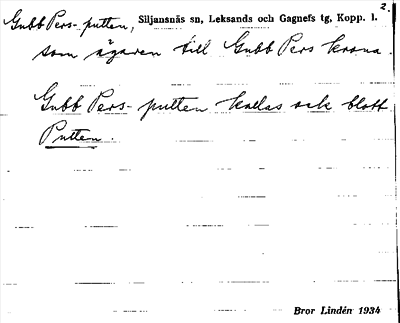 2.
Gubb Pers-putten, Siljansnäs sn, Leksands och Gagnefs tg, Kopp. l.
som ägaren till Gubb Pers krona.
Gubb Pers-putten kallas ock blott
Putten.
Bror Lindén 1934